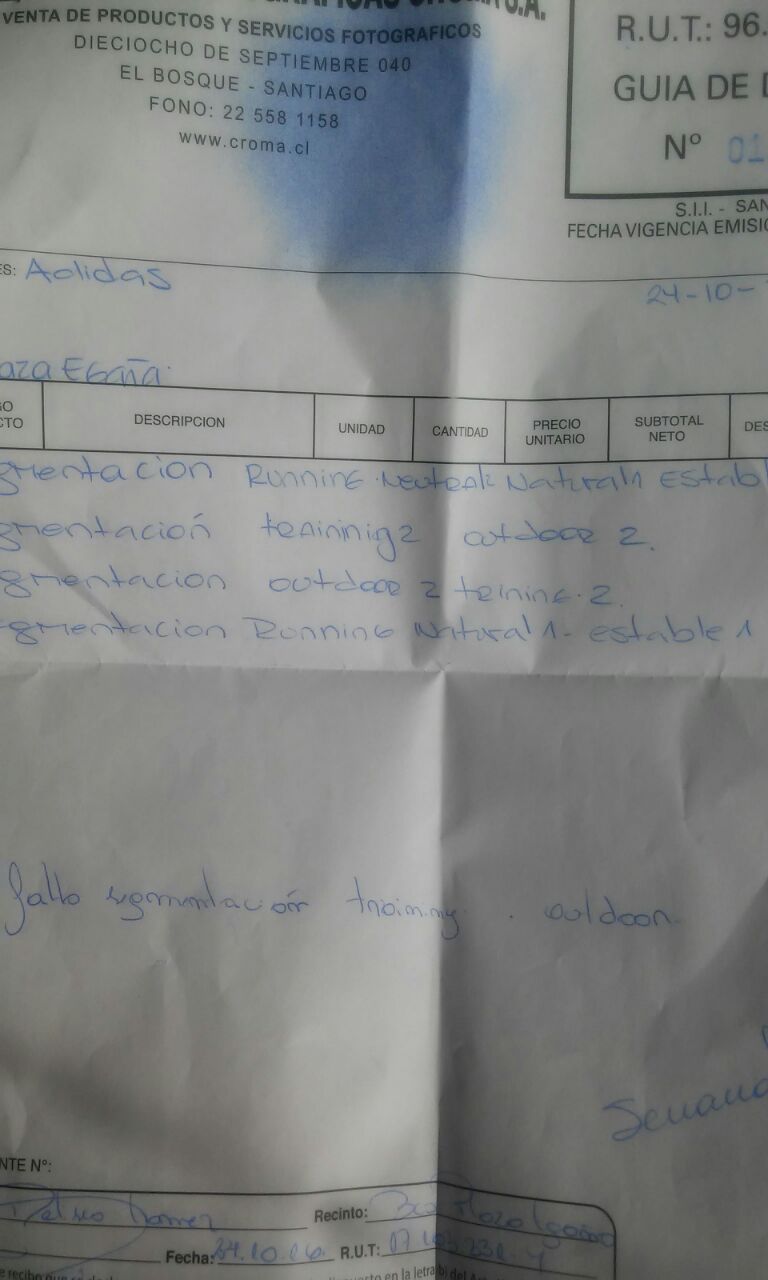 S.A.
VENTA DE PRODUCTOS Y SERVICIOS FOTOGRAFICOS
DIECIOCHO DE SEPTIEMBRE 040
EL BOSQUE - SANTIAGO
FONO: 22 558 1158
www.croma.cl
R.U.T.: 96.
GUIA DE D
Nº 01
S.I.I. - SAN
FECHA VIGENCIA EMISIO
ES: Adidas
24-10-
aza Egaña.
GO
CTO
DESCRIPCION
UNIDAD
CANTIDAD
PRECIO
UNITARIO
SUBTOTAL
NETO
DES
gmentacion Running Neutral Natural 1 Establ
gmentación training 2 outdoor 2.
gmentacion outdoor 2 trining. 2.
egmentacion Running Natural 1 - estable 1
fallo segmentación training . outdoor.
Semana
NTE Nº:
Recinto: Plaza Egaña
Fecha: 24.10.16. R.U.T.: 17
e recibo que se de
puesto en la letra b) del